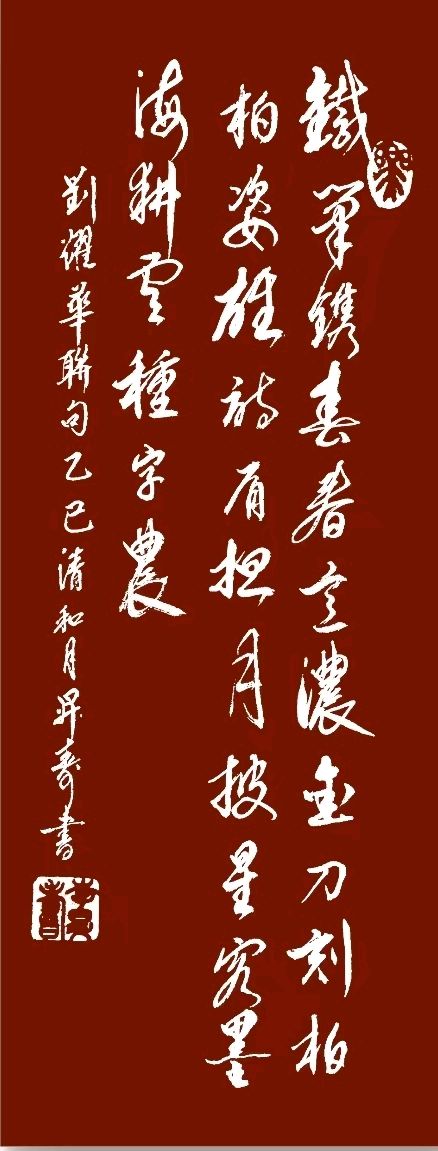 鐵筆鐫春春意濃金刀刻柏
柏姿雄詩肩担月披星客墨
海耕雲種字農
劉耀華聯句乙巳清和月昇壽書